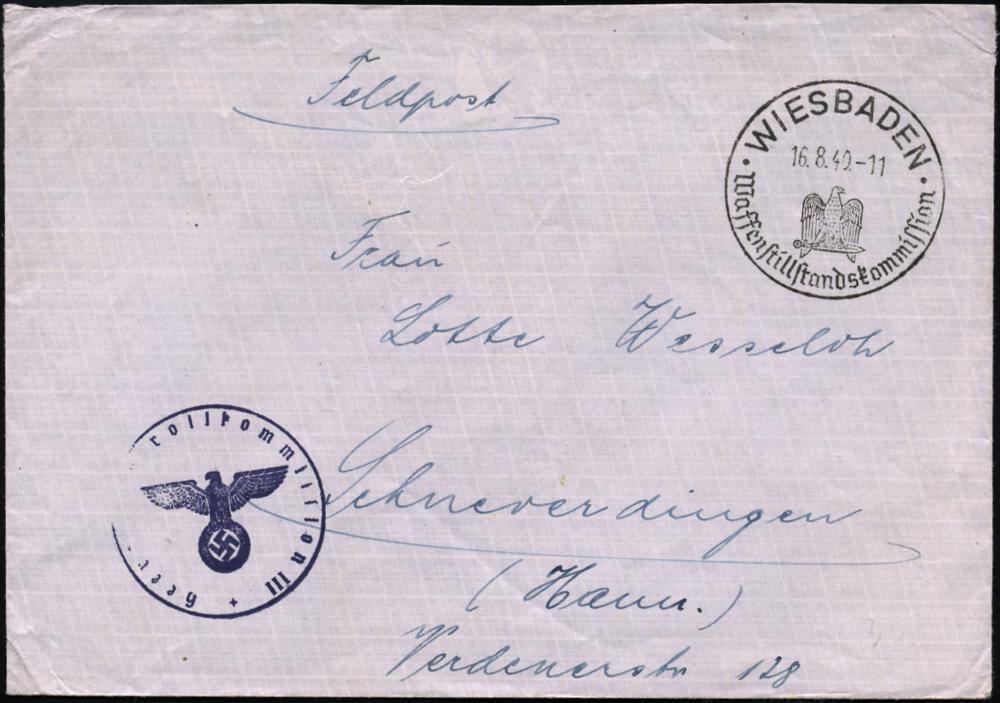 Feldpost
WIESBADEN
16.8.40.-11
Waffenstillstandskommission
Frau
Lotte Wesseloh
Schneverdingen
(Hann.)
Verdenerstr 128
rollkommission III + Heer